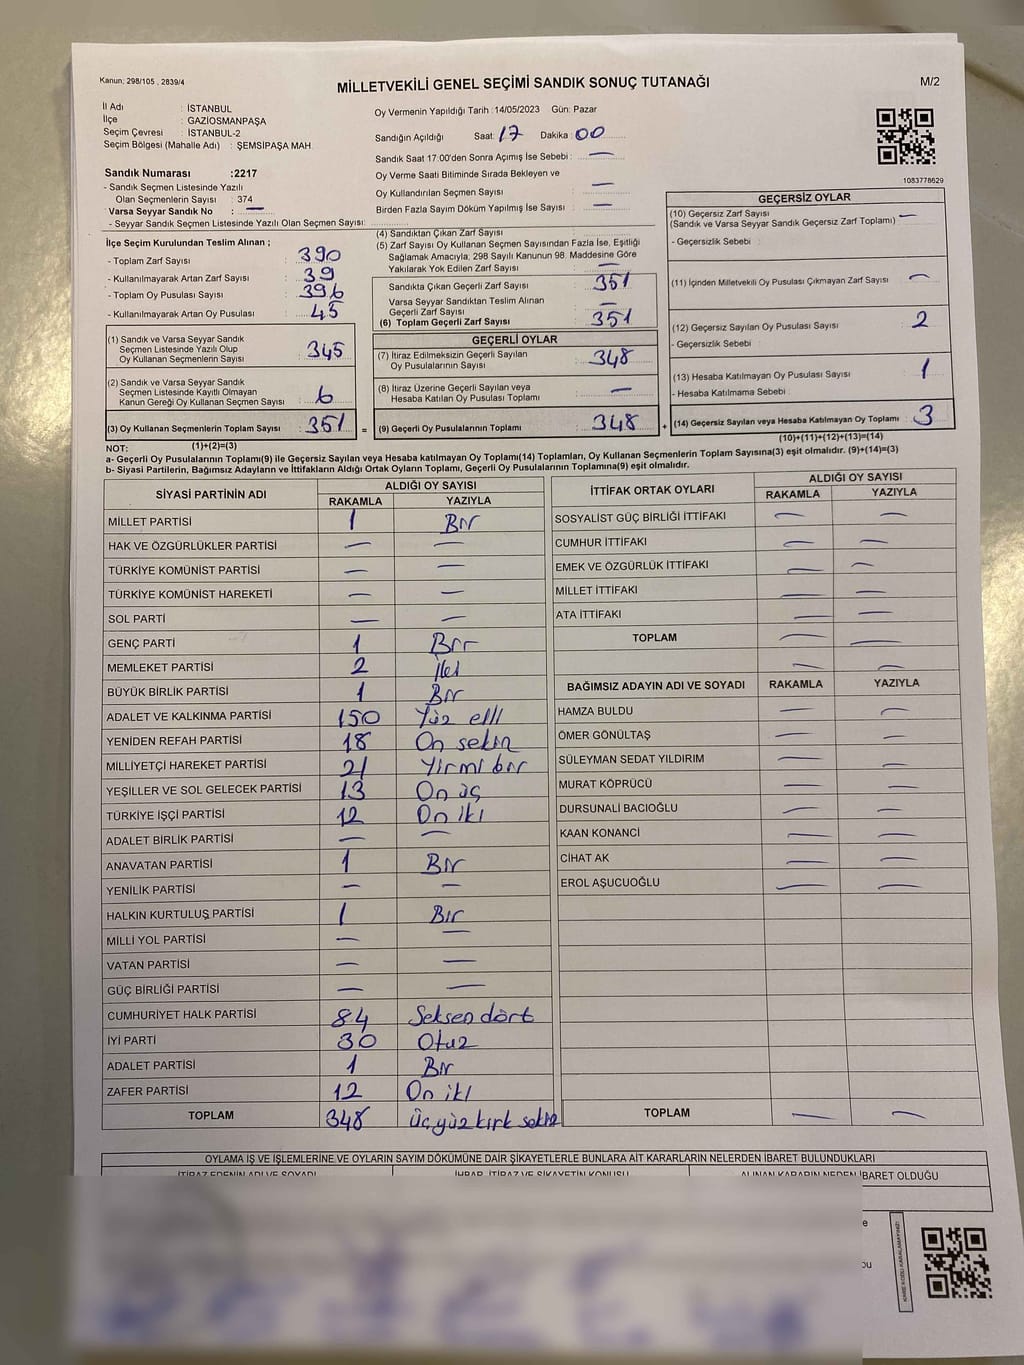 Kanun; 298/105 , 2839/4
MİLLETVEKİLİ GENEL SEÇİMİ SANDIK SONUÇ TUTANAĞI
M/2
İl Adı : İSTANBUL
İlçe : GAZİOSMANPAŞA
Seçim Çevresi : İSTANBUL-2
Seçim Bölgesi (Mahalle Adı) : ŞEMSİPAŞA MAH.
Sandık Numarası :2217
- Sandık Seçmen Listesinde Yazılı
Olan Seçmenlerin Sayısı : 374
Varsa Seyyar Sandık No : —
- Seyyar Sandık Seçmen Listesinde Yazılı Olan Seçmen Sayısı:
Oy Vermenin Yapıldığı Tarih :14/05/2023 Gün: Pazar
Sandığın Açıldığı Saat: 17 Dakika : 00
Sandık Saat 17.00'den Sonra Açımış İse Sebebi : —
Oy Verme Saati Bitiminde Sırada Bekleyen ve
Oy Kullandırılan Seçmen Sayısı : —
Birden Fazla Sayım Döküm Yapılmış İse Sayısı : —
1083778629
İlçe Seçim Kurulundan Teslim Alınan ;
- Toplam Zarf Sayısı : 390
- Kullanılmayarak Artan Zarf Sayısı : 39
- Toplam Oy Pusulası Sayısı : 396
- Kullanılmayarak Artan Oy Pusulası : 45
(1) Sandık ve Varsa Seyyar Sandık
Seçmen Listesinde Yazılı Olup
Oy Kullanan Seçmenlerin Sayısı : 345
(2) Sandık ve Varsa Seyyar Sandık
Seçmen Listesinde Kayıtlı Olmayan
Kanun Gereği Oy Kullanan Seçmen Sayısı : 6
(3) Oy Kullanan Seçmenlerin Toplam Sayısı : 351 =
(1)+(2)=(3)
(4) Sandıktan Çıkan Zarf Sayısı :
(5) Zarf Sayısı Oy Kullanan Seçmen Sayısından Fazla İse, Eşitliği
Sağlamak Amacıyla; 298 Sayılı Kanunun 98. Maddesine Göre
Yakılarak Yok Edilen Zarf Sayısı : —
Sandıkta Çıkan Geçerli Zarf Sayısı : 351
Varsa Seyyar Sandıktan Teslim Alınan
Geçerli Zarf Sayısı : —
(6) Toplam Geçerli Zarf Sayısı : 351
GEÇERLİ OYLAR
(7) İtiraz Edilmeksizin Geçerli Sayılan
Oy Pusulalarının Sayısı : 348
(8) İtiraz Üzerine Geçerli Sayılan veya
Hesaba Katılan Oy Pusulası Toplamı : —
(9) Geçerli Oy Pusulalarının Toplamı : 348 +
GEÇERSİZ OYLAR
(10) Geçersiz Zarf Sayısı : —
(Sandık ve Varsa Seyyar Sandık Geçersiz Zarf Toplamı)
- Geçersizlik Sebebi :
(11) İçinden Milletvekili Oy Pusulası Çıkmayan Zarf Sayısı : —
(12) Geçersiz Sayılan Oy Pusulası Sayısı : 2
- Geçersizlik Sebebi :
(13) Hesaba Katılmayan Oy Pusulası Sayısı : 1
- Hesaba Katılmama Sebebi :
(14) Geçersiz Sayılan veya Hesaba Katılmayan Oy Toplamı : 3
(10)+(11)+(12)+(13)=(14)
NOT:
a- Geçerli Oy Pusulalarının Toplamı(9) ile Geçersiz Sayılan veya Hesaba Katılmayan Oy Toplamı(14) Toplamları, Oy Kullanan Seçmenlerin Toplam Sayısına(3) eşit olmalıdır. (9)+(14)=(3)
b- Siyasi Partilerin, Bağımsız Adayların ve İttifakların Aldığı Ortak Oyların Toplamı, Geçerli Oy Pusulalarının Toplamına(9) eşit olmalıdır.
SİYASİ PARTİNİN ADI ALDIĞI OY SAYISI
RAKAMLA YAZIYLA
MİLLET PARTİSİ 1 Bir
HAK VE ÖZGÜRLÜKLER PARTİSİ — —
TÜRKİYE KOMÜNİST PARTİSİ — —
TÜRKİYE KOMÜNİST HAREKETİ — —
SOL PARTİ — —
GENÇ PARTİ 1 Bir
MEMLEKET PARTİSİ 2 İki
BÜYÜK BİRLİK PARTİSİ 1 Bir
ADALET VE KALKINMA PARTİSİ 150 Yüz elli
YENİDEN REFAH PARTİSİ 18 On sekiz
MİLLİYETÇİ HAREKET PARTİSİ 21 Yirmi bir
YEŞİLLER VE SOL GELECEK PARTİSİ 13 On üç
TÜRKİYE İŞÇİ PARTİSİ 12 On iki
ADALET BİRLİK PARTİSİ — —
ANAVATAN PARTİSİ 1 Bir
YENİLİK PARTİSİ — —
HALKIN KURTULUŞ PARTİSİ 1 Bir
MİLLİ YOL PARTİSİ — —
VATAN PARTİSİ — —
GÜÇ BİRLİĞİ PARTİSİ — —
CUMHURİYET HALK PARTİSİ 84 Seksen dört
İYİ PARTİ 30 Otuz
ADALET PARTİSİ 1 Bir
ZAFER PARTİSİ 12 On iki
TOPLAM 348 üç yüz kırk sekiz
İTTİFAK ORTAK OYLARI ALDIĞI OY SAYISI
RAKAMLA YAZIYLA
SOSYALİST GÜÇ BİRLİĞİ İTTİFAKI — —
CUMHUR İTTİFAKI — —
EMEK VE ÖZGÜRLÜK İTTİFAKI — —
MİLLET İTTİFAKI — —
ATA İTTİFAKI — —
TOPLAM — —
— —
BAĞIMSIZ ADAYIN ADI VE SOYADI RAKAMLA YAZIYLA
HAMZA BULDU — —
ÖMER GÖNÜLTAŞ — —
SÜLEYMAN SEDAT YILDIRIM — —
MURAT KÖPRÜCÜ — —
DURSUNALİ BACIOĞLU — —
KAAN KONANCİ — —
CİHAT AK — —
EROL AŞUCUOĞLU — —
TOPLAM — —
OYLAMA İŞ VE İŞLEMLERİNE VE OYLARIN SAYIM DÖKÜMÜNE DAİR ŞİKAYETLERLE BUNLARA AİT KARARLARIN NELERDEN İBARET BULUNDUKLARI
İTİRAZ EDENİN ADI VE SOYADI İHBAR, İTİRAZ VE ŞİKAYETİN KONUSU ALINAN KARARIN NEDEN İBARET OLDUĞU